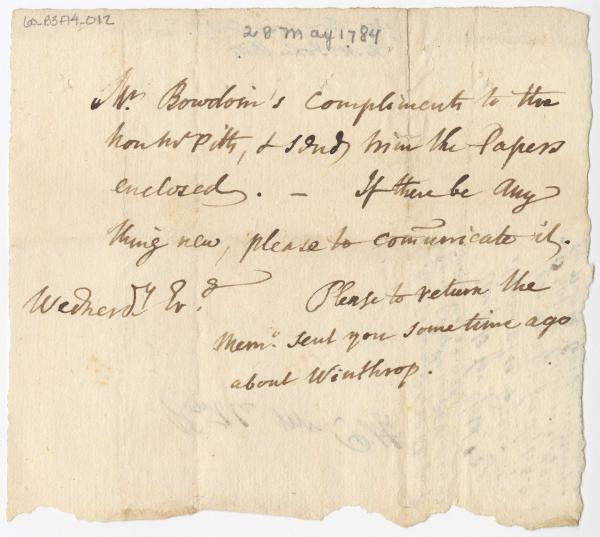 60_B3F14_012
28 May 1784
Mr. Bowdoin's compliments to the
honble Mr Pitts, & sends him the Papers
enclosed. — If there be any
thing new, please to comunicate it.
Wednesdy Ev.g
Please to return the
Memo. sent you some time ago
about Winthrop.